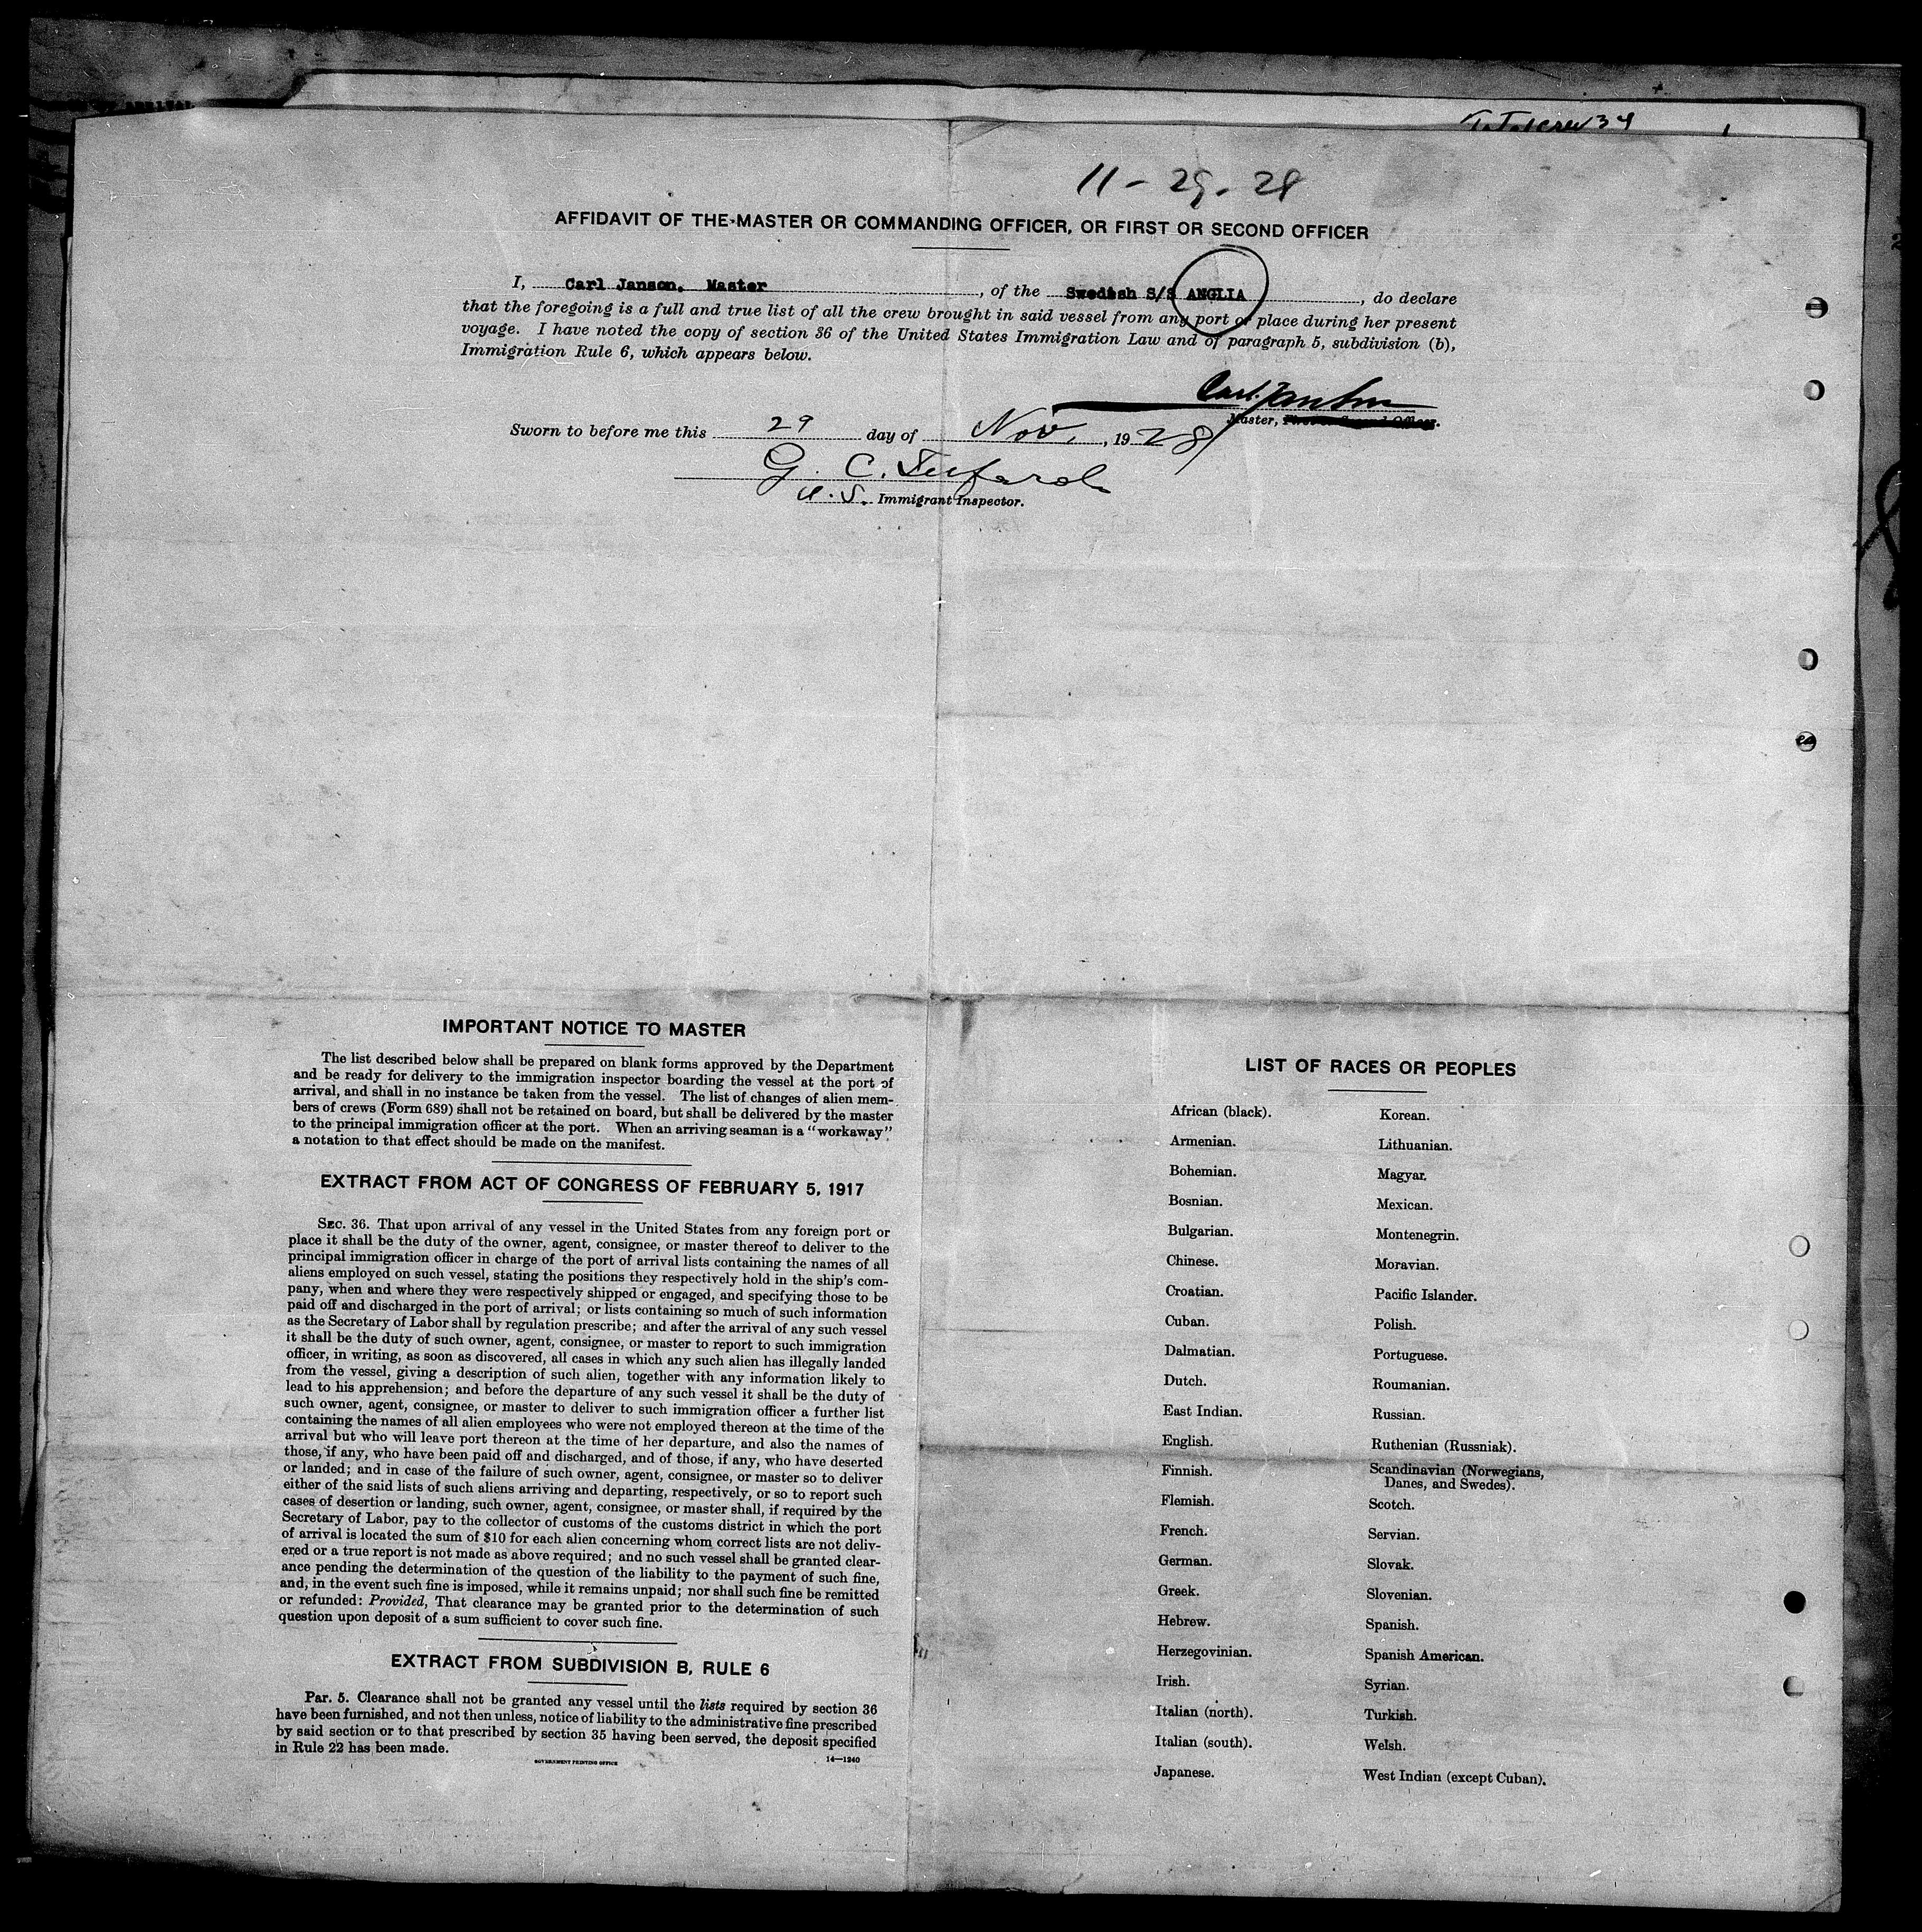 11-29-28
AFFIDAVIT OF THE MASTER OR COMMANDING OFFICER, OR FIRST OR SECOND OFFICER
I, Carl Janson, Master, of the Swedish S/S ANGLIA, do declare
that the foregoing is a full and true list of all the crew brought in said vessel from any port or place during her present
voyage. I have noted the copy of section 36 of the United States Immigration Law and of paragraph 5, subdivision (b),
Immigration Rule 6, which appears below.
Carl Janson
Master, First or Second Officer.
Sworn to before me this 29 day of Nov., 1928
G. C.
U.S. Immigrant Inspector.
IMPORTANT NOTICE TO MASTER
The list described below shall be prepared on blank forms approved by the Department
and be ready for delivery to the immigration inspector boarding the vessel at the port of
arrival, and shall in no instance be taken from the vessel. The list of changes of alien mem-
bers of crews (Form 689) shall not be retained on board, but shall be delivered by the master
to the principal immigration officer at the port. When an arriving seaman is a "workaway"
a notation to that effect should be made on the manifest.
EXTRACT FROM ACT OF CONGRESS OF FEBRUARY 5, 1917
SEC. 36. That upon arrival of any vessel in the United States from any foreign port or
place it shall be the duty of the owner, agent, consignee, or master thereof to deliver to the
principal immigration officer in charge of the port of arrival lists containing the names of all
aliens employed on such vessel, stating the positions they respectively hold in the ship's com-
pany, when and where they were respectively shipped or engaged, and specifying those to be
paid off and discharged in the port of arrival; or lists containing so much of such information
as the Secretary of Labor shall by regulation prescribe; and after the arrival of any such vessel
it shall be the duty of such owner, agent, consignee, or master to report to such immigration
officer, in writing, as soon as discovered, all cases in which any such alien has illegally landed
from the vessel, giving a description of such alien, together with any information likely to
lead to his apprehension; and before the departure of any such vessel it shall be the duty of
such owner, agent, consignee, or master to deliver to such immigration officer a further list
containing the names of all alien employees who were not employed thereon at the time of the
arrival but who will leave port thereon at the time of her departure, and also the names of
those, if any, who have been paid off and discharged, and of those, if any, who have deserted
or landed; and in case of the failure of such owner, agent, consignee, or master so to deliver
either of the said lists of such aliens arriving and departing, respectively, or so to report such
cases of desertion or landing, such owner, agent, consignee, or master shall, if required by the
Secretary of Labor, pay to the collector of customs of the customs district in which the port
of arrival is located the sum of $10 for each alien concerning whom correct lists are not deliv-
ered or a true report is not made as above required; and no such vessel shall be granted clear-
ance pending the determination of the question of the liability to the payment of such fine,
and, in the event such fine is imposed, while it remains unpaid; nor shall such fine be remitted
or refunded: Provided, That clearance may be granted prior to the determination of such
question upon deposit of a sum sufficient to cover such fine.
EXTRACT FROM SUBDIVISION B, RULE 6
Par. 5. Clearance shall not be granted any vessel until the lists required by section 36
have been furnished, and not then unless, notice of liability to the administrative fine prescribed
by said section or to that prescribed by section 35 having been served, the deposit specified
in Rule 22 has been made.
GOVERNMENT PRINTING OFFICE 14—1240
LIST OF RACES OR PEOPLES
African (black).
Armenian.
Bohemian.
Bosnian.
Bulgarian.
Chinese.
Croatian.
Cuban.
Dalmatian.
Dutch.
East Indian.
English.
Finnish.
Flemish.
French.
German.
Greek.
Hebrew.
Herzegovinian.
Irish.
Italian (north).
Italian (south).
Japanese.
Korean.
Lithuanian.
Magyar.
Mexican.
Montenegrin.
Moravian.
Pacific Islander.
Polish.
Portuguese.
Roumanian.
Russian.
Ruthenian (Russniak).
Scandinavian (Norwegians,
Danes, and Swedes).
Scotch.
Servian.
Slovak.
Slovenian.
Spanish.
Spanish American.
Syrian.
Turkish.
Welsh.
West Indian (except Cuban).